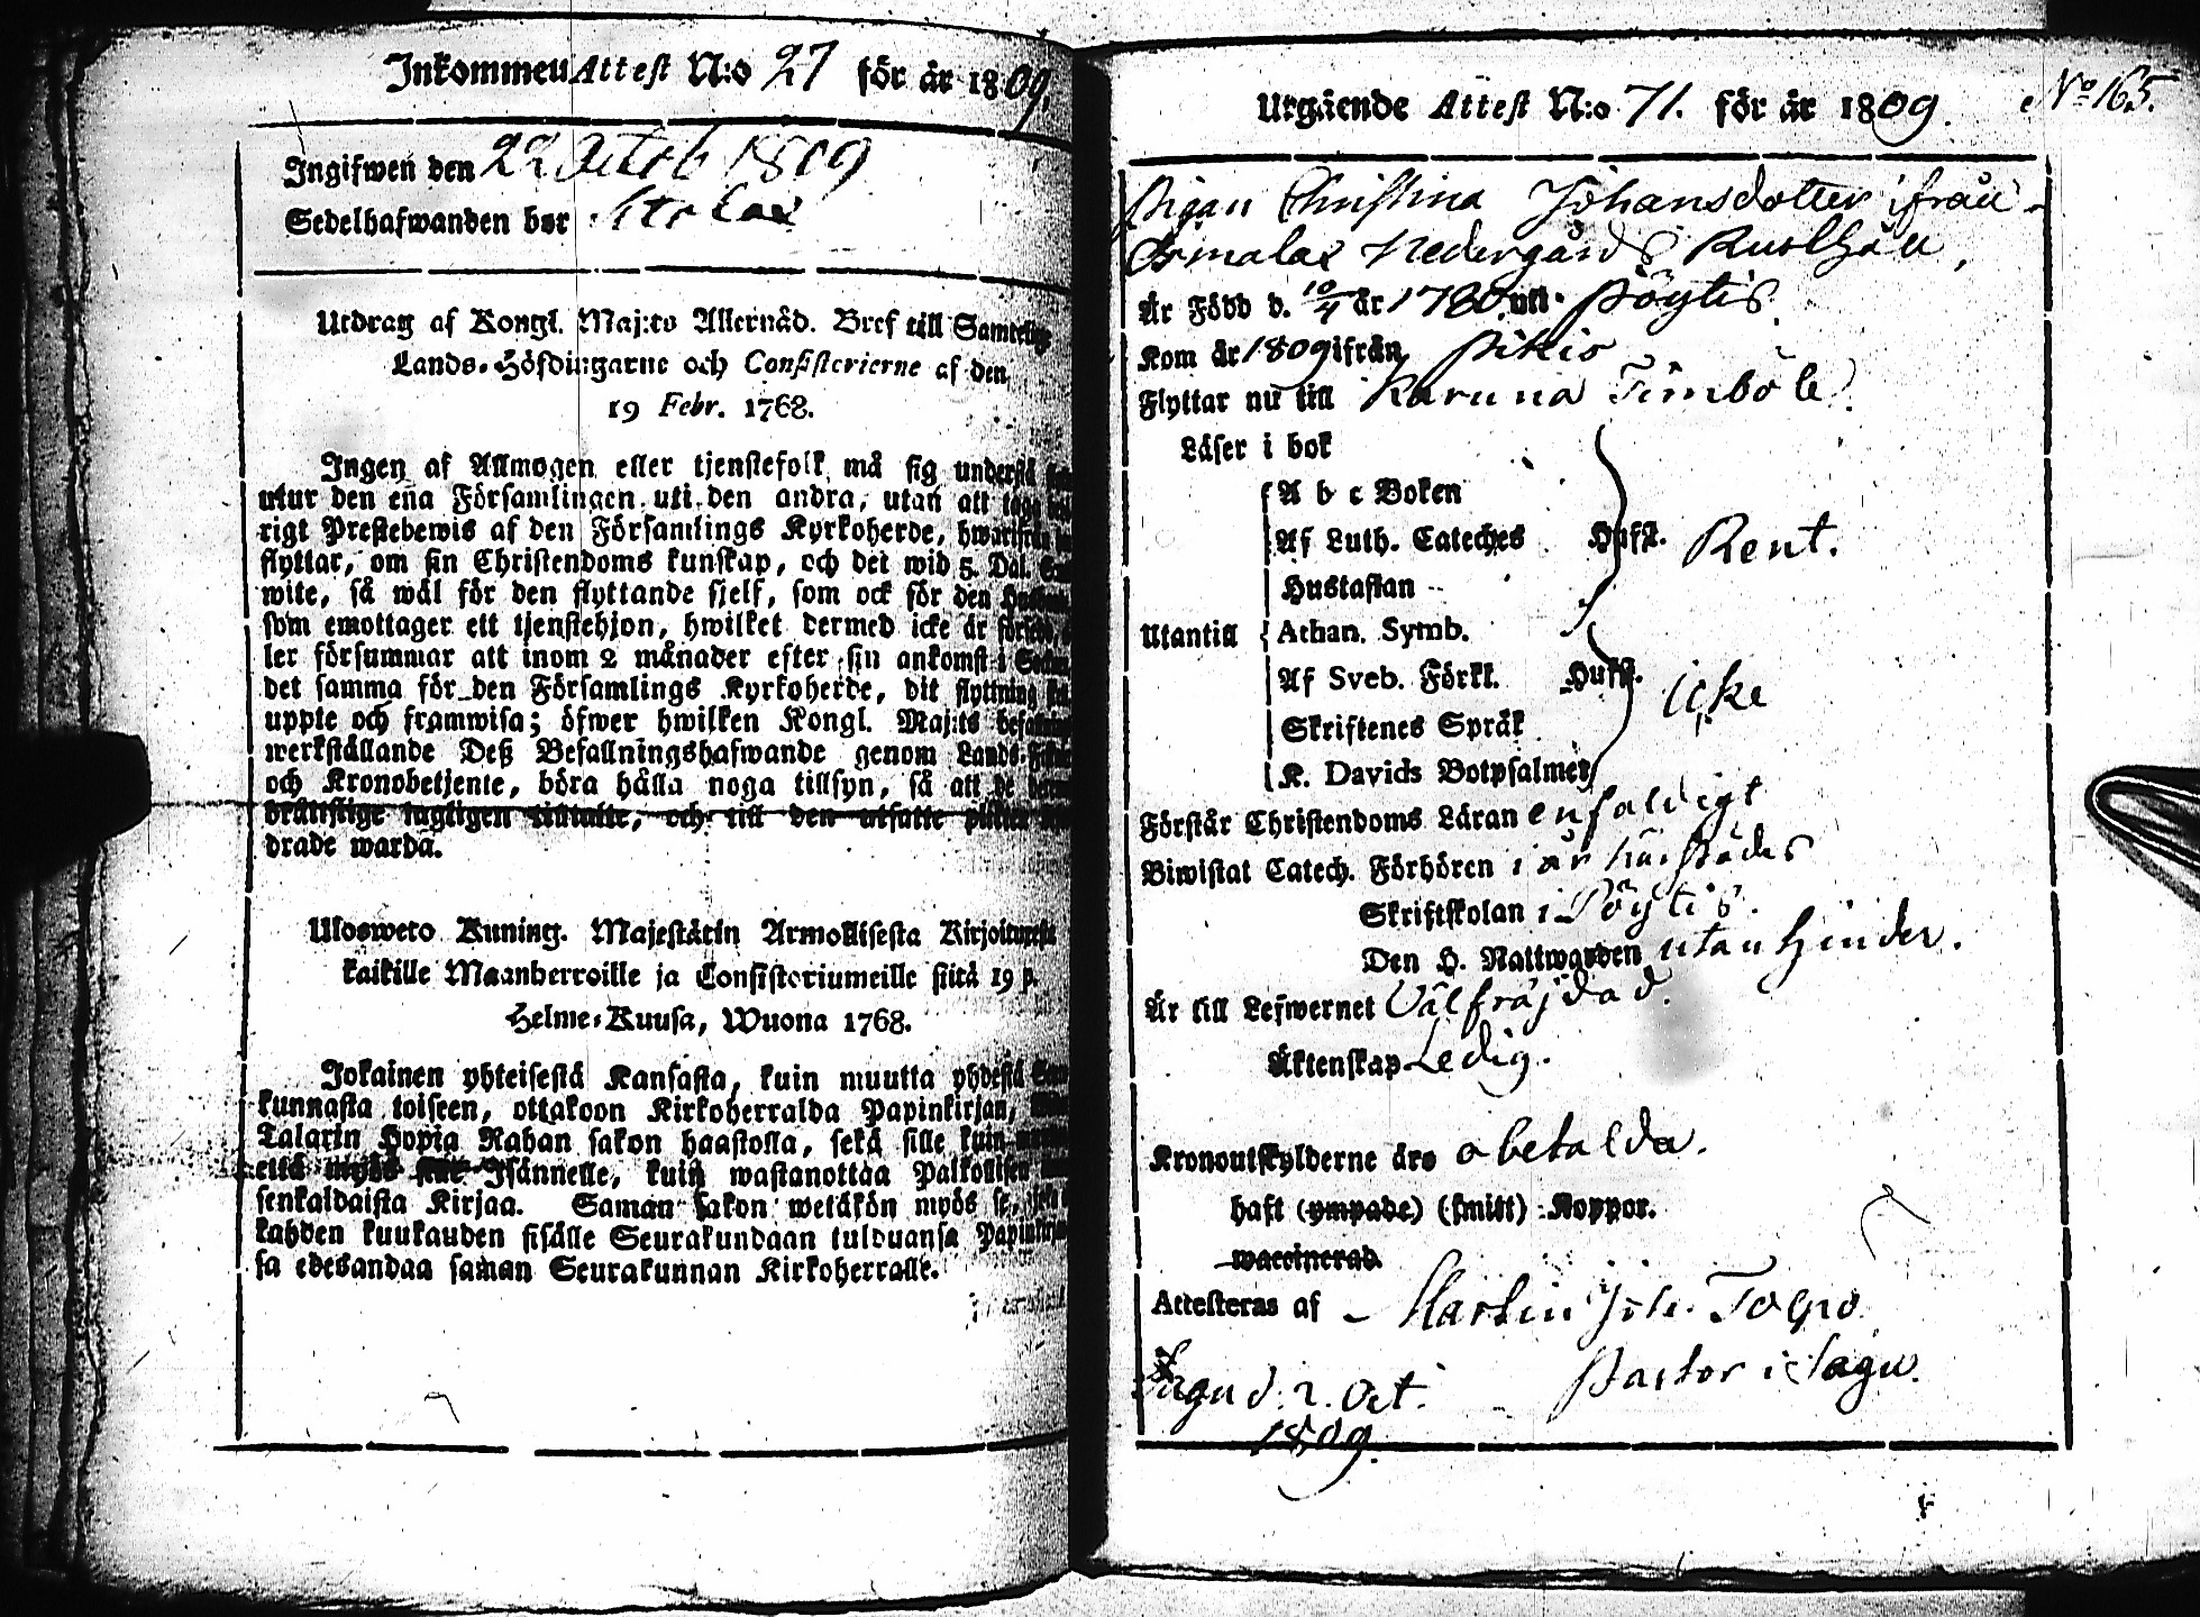 Inkommen Attest N:o 27 för år 1809.
Ingifwen den 22 Octob 1809
Sedelhafwanden bor
Utdrag af Kongl. Maj:ts Allernåd. Bref till Samtelige
Lands-Höfdingarne och Consistorierne af den
19 Febr. 1768.
Ingen af Allmogen eller tjenstefolk må sig understå
utur den ena Församlingen uti den andra, utan att taga
rigt Prestebewis af den Församlings Kyrkoherde, hwarifrån
flyttar, om sin Christendoms kunskap, och det wid 5. Dal.
wite, så wäl för den flyttande sjelf, som ock för den
som emottager ett tjenstehjon, hwilket dermed icke är försedt,
ler försummar att inom 2 månader efter sin ankomst i
det samma för den Församlings Kyrkoherde, dit flyttning
uppte och framwisa; öfwer hwilken Kongl. Maj:ts befallning
werkställande Deß Befallningshafwande genom Lands-
och Kronobetjente, böra hålla noga tillsyn, så att de
bråttslige lagligen tilltalte, och till den utsatte plikten
drade warda.
Ulosweto Kuning. Majestätin Armollisesta Kirjoituxesta
kaikille Maanherroille ja Consistoriumeille siitä 19 p.
Helme-Kuusa, Wuona 1768.
Jokainen yhteisestä Kansasta, kuin muutta yhdestä
kunnasta toiseen, ottakoon Kirkoherralda Papinkirjan,
Talarin Hopia Rahan sakon haastolla, sekä sille kuin
että myös Isännelle, kuin wastanottaa Palkollisen
senkaldaista Kirjaa. Saman sakon wetäkön myös se,
kahden kuukauden sisälle Seurakundaan tulduansa
sa edesandaa saman Seurakunnan Kirkoherralle.
Utgående Attest N:o 71. för år 1809. No 165.
Pigan Christina Johansdotter ifrån
Nedergårds Rusthåll,
Är Född d. 10/4 år 1780. uti Pöytis.
Kom år 1809 ifrån Pikis
Flyttar nu till Karuna Timböle.
Läser i bok
A b c Boken
Af Luth. Cateches Hufst. Rent.
Hustaflan
Utantill Athan. Symb.
Af Sveb. Förkl. Hufst. icke
Skriftenes Språk
K. Davids Botpsalmer
Förstår Christendoms Läran enfaldigt
Biwistat Catech. Förhören i år härstädes
Skriftskolan i Pöytis.
Den H. Nattwarden utan hinder.
Är till Lefwernet Välfräjdad.
Äktenskap Ledig.
Kronoutskylderne äro obetalda.
haft (ympade) (smitt) Koppor.
waccinerad.
Attesteras af Martin Joh. Tolpo
Pastor i Sagu.
Sagu d. 2. Oct.
1809.